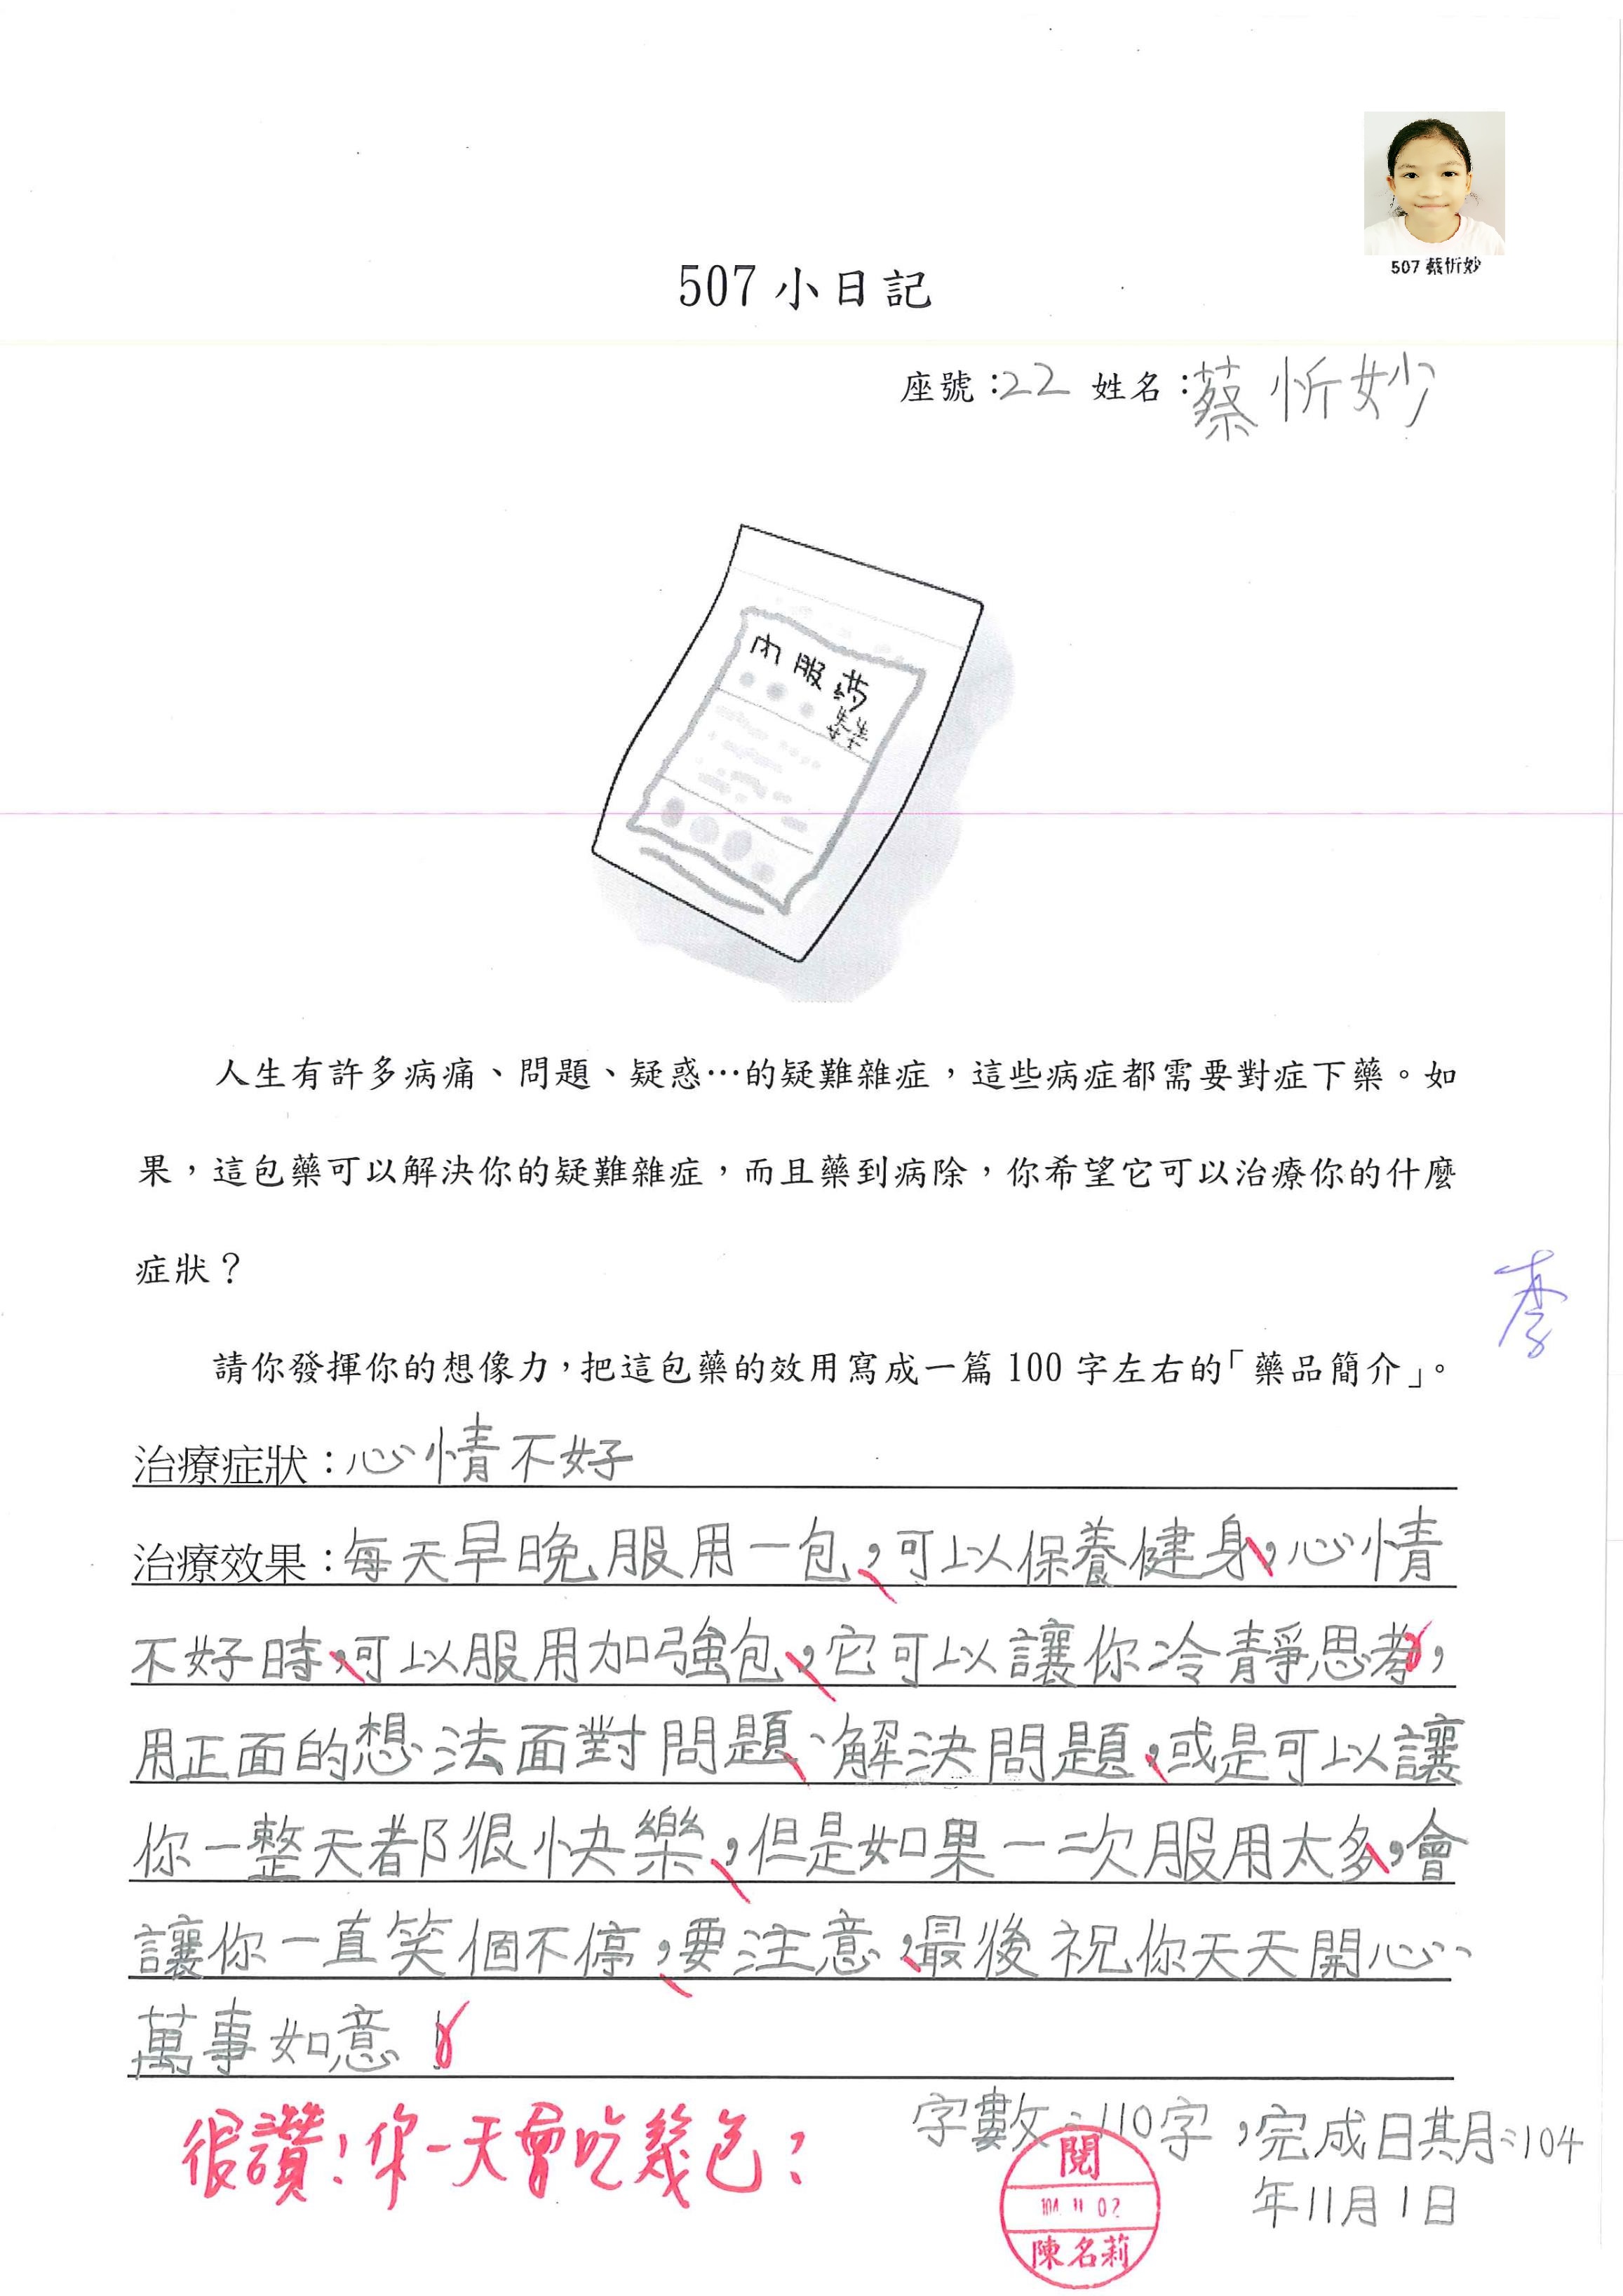 507 蔡忻妙
507 小日記
座號：22 姓名：蔡忻妙
內服药
人生有許多病痛、問題、疑惑…的疑難雜症，這些病症都需要對症下藥。如
果，這包藥可以解決你的疑難雜症，而且藥到病除，你希望它可以治療你的什麼
症狀？
李
請你發揮你的想像力，把這包藥的效用寫成一篇 100 字左右的「藥品簡介」。
治療症狀：心情不好
治療效果：每天早晚服用一包，可以保養健身，心情
不好時，可以服用加強包，它可以讓你冷靜思考，
用正面的想法面對問題、解決問題，或是可以讓
你一整天都很快樂，但是如果一次服用太多，會
讓你一直笑個不停，要注意，最後祝你天天開心、
萬事如意！
很讚！你一天會吃幾包？
字數：110字，完成日期：104
年11月1日
閱
104 11 02
陳名莉